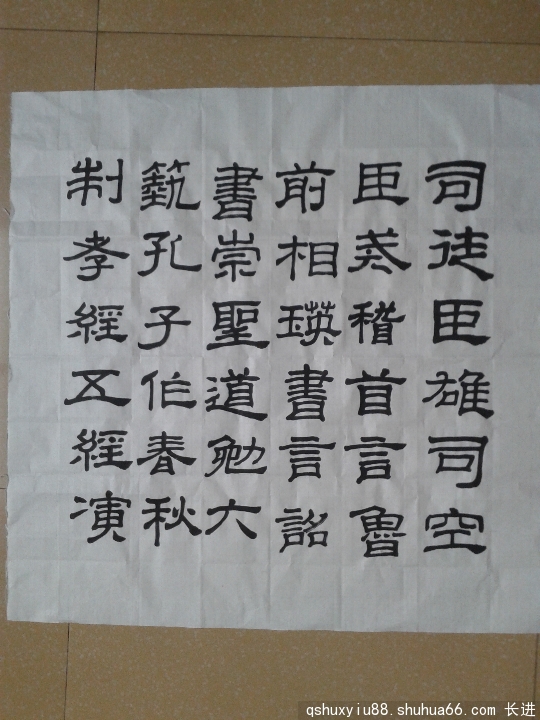 司徒臣雄司空
臣戒稽首言魯
前相瑛書言詔
書崇聖道勉大
藝孔子作春秋
制孝經五經演
qshuxyiu88.shuhua66.com 长进